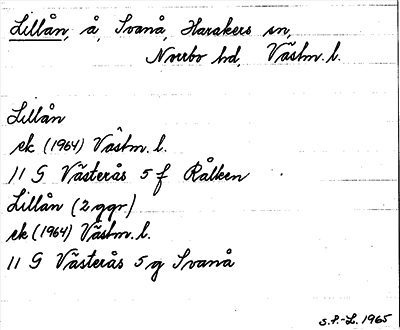 Lillån, å, Svanå, Harakers sn,
Norrbo hd, Västm. l.
Lillån
ek (1964) Västm. l.
11 G Västerås 5 f Rålken
Lillån (2 ggr)
ek (1964) Västm. l.
11 G Västerås 5 g Svanå
S.F.-L. 1965